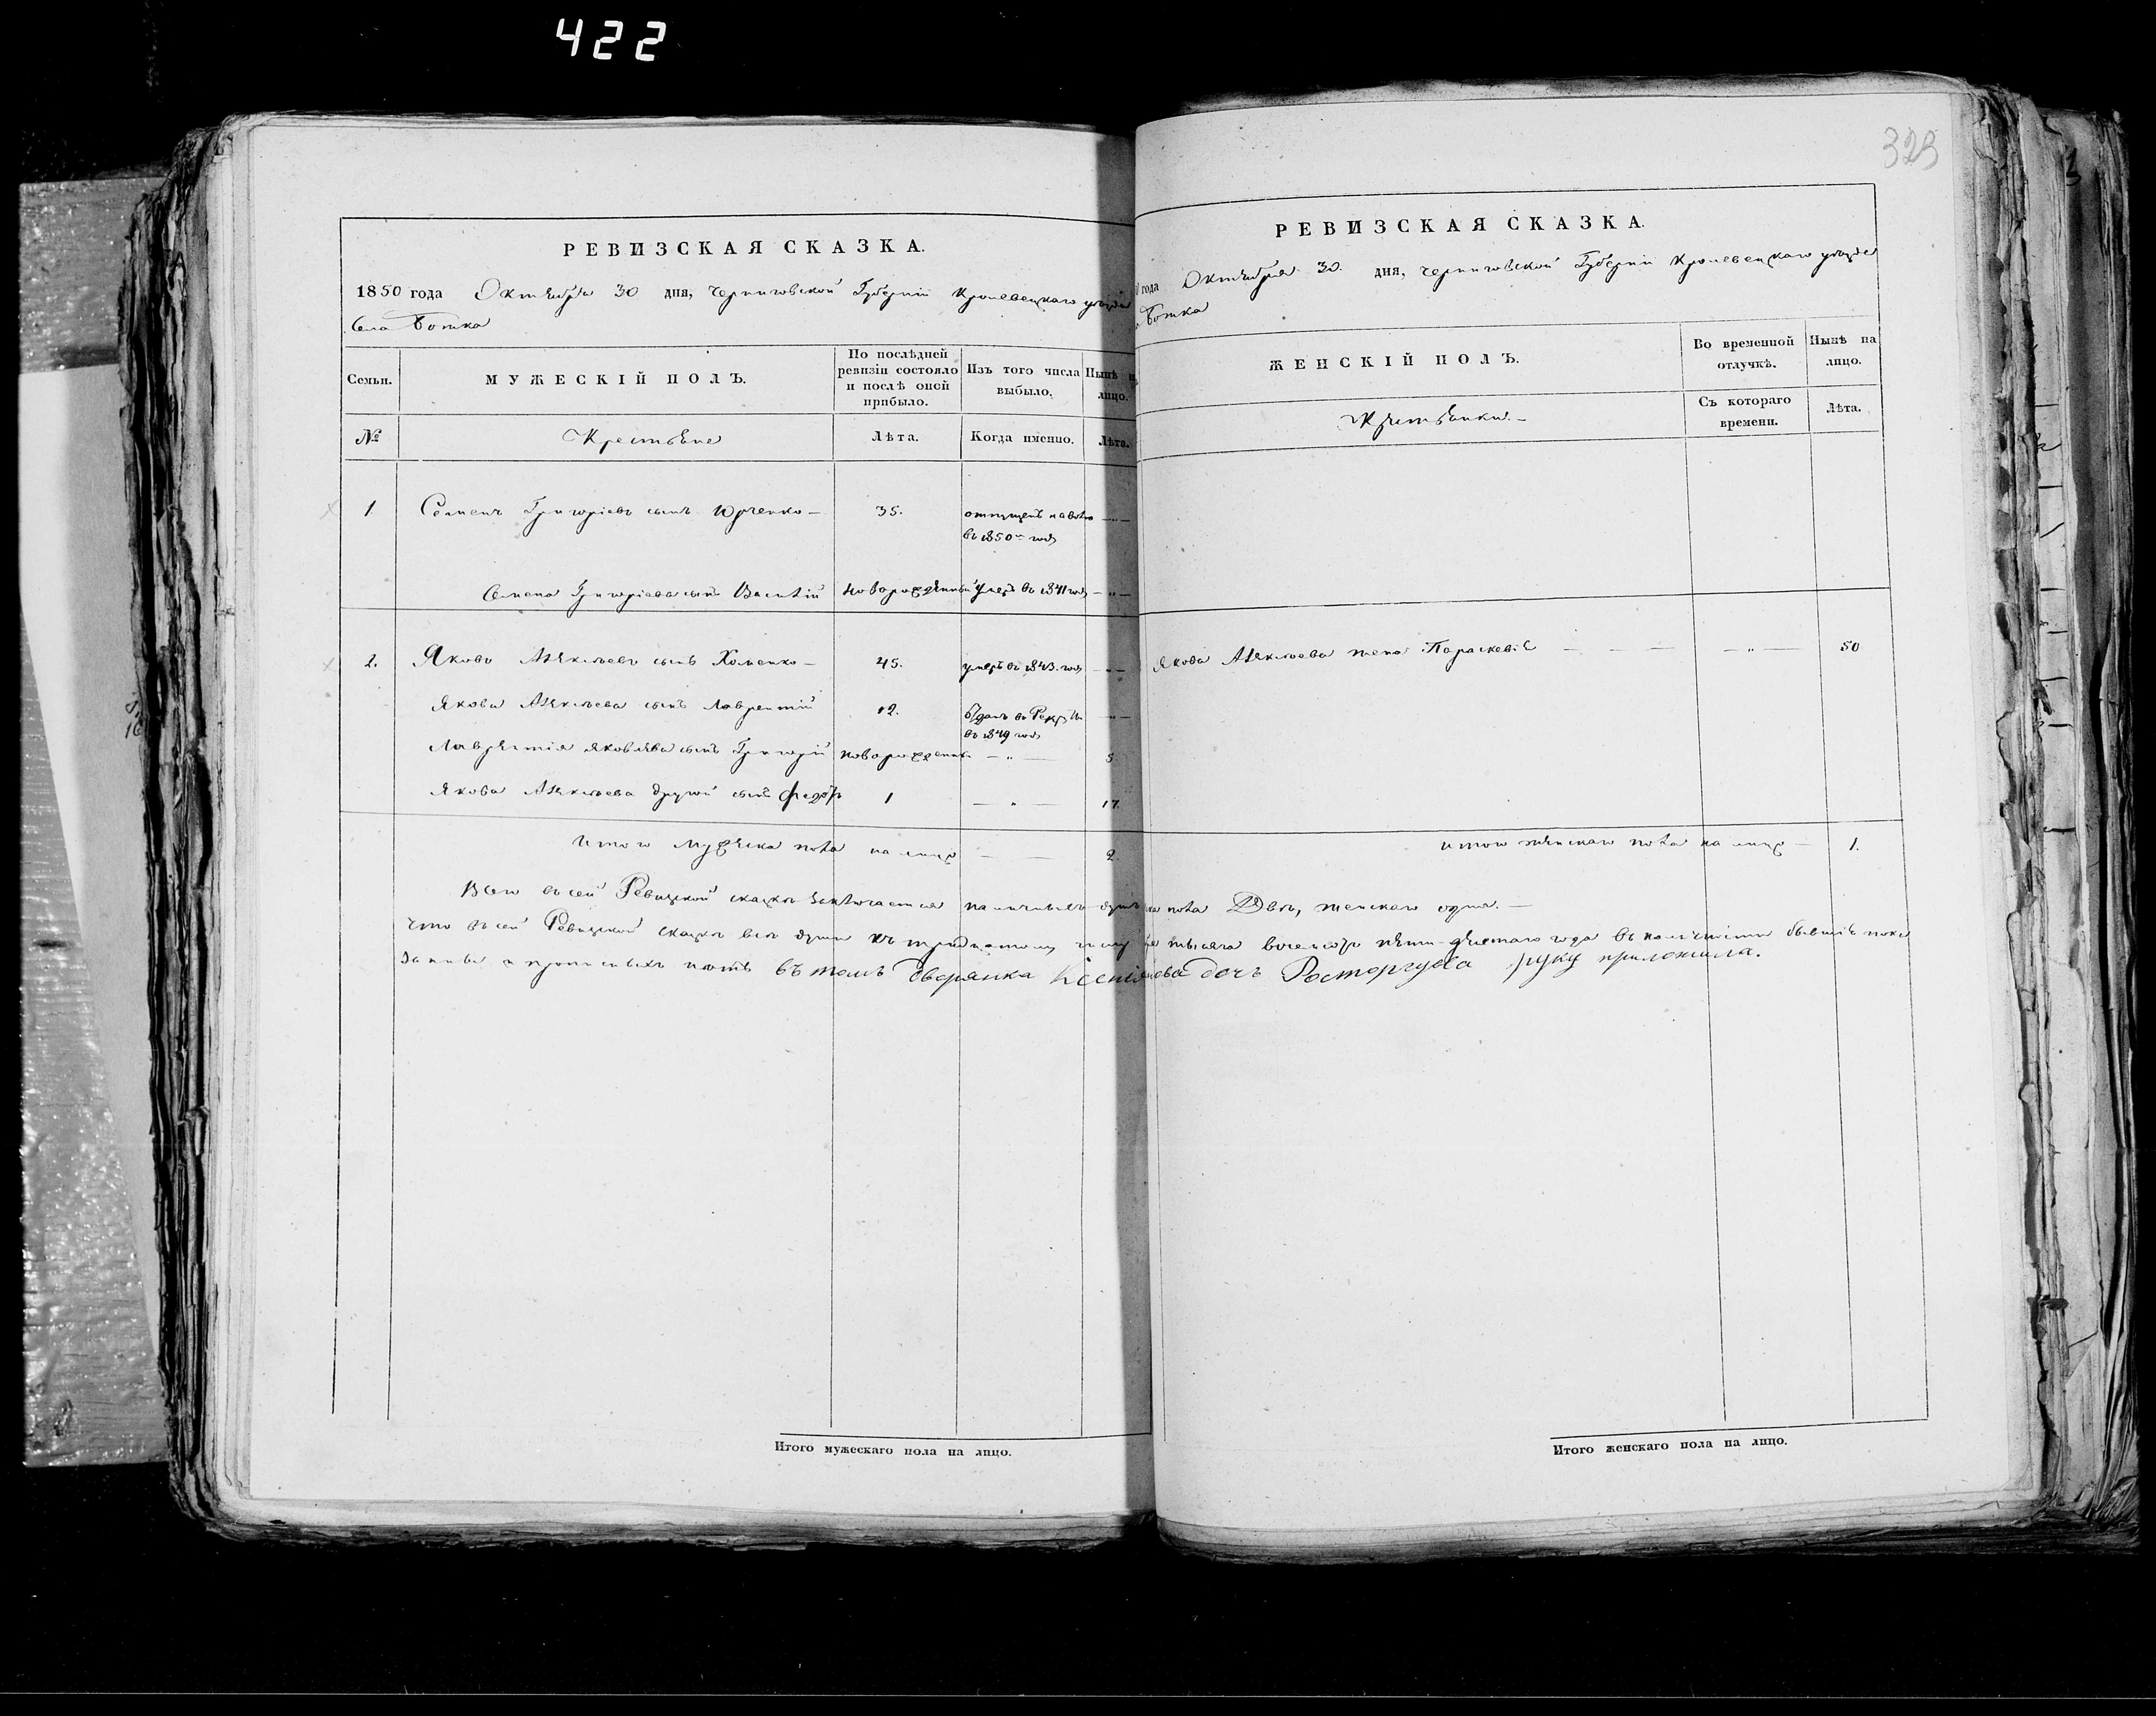 422
329
РЕВИЗСКАЯ СКАЗКА.
1850 года Октября 30 дня, Черниговской Губерніи Кролевецкаго уезда
Села Ботка
Семьи. МУЖЕСКІЙ ПОЛЪ. По послѣдней ревизіи состояло и послѣ оной прибыло. Изъ того числа выбыло. Нынѣ на лицо.
№ Крестьяне Лѣта. Когда именно. Лѣта.
1 Семенъ Григоріевъ сынъ Юрченко — 35. отпущенъ на волю — „ —
въ 1850м году
Семена Григоріева сынъ Василій новорожденный Умеръ въ 1841 году — „ —
2. Яковъ Алексѣевъ сынъ Хоменко — 45. умеръ въ 1843. году — „ —
Якова Алексѣева сынъ Лаврентій 12. отданъ въ Рекруты — „ —
въ 1849 году
Лаврентія Яковлева сынъ Григорій новорожденный — „ — 5
Якова Алексѣева другой сынъ Федоръ 1 — „ — 17.
Итого Мужеска пола на лицо — — 2.
РЕВИЗСКАЯ СКАЗКА.
года Октября 30. дня, Черниговской Губерніи Кролевецкаго уезда
Ботка
ЖЕНСКІЙ ПОЛЪ. Во временной отлучкѣ. Нынѣ на лицо.
Крестьянки. — Съ котораго времени. Лѣта.
Якова Алексѣева жена Параскевія — — — — „ — 50
итого женскаго пола на лицо — 1.
Всего въ сей Ревизской сказкѣ заключается наличныхъ душъ пола Двѣ, женскаго одна. —
Что въ сей Ревизской сказкѣ всѣ души къ тридцатому числу тысяча восемьсотъ пятидесятаго года въ наличности бывшіе показаны и прописныхъ нѣтъ въ томъ дворянка Ксенія дочь Расторгуева руку приложила.
Итого мужескаго пола на лицо.
Итого женскаго пола на лицо.